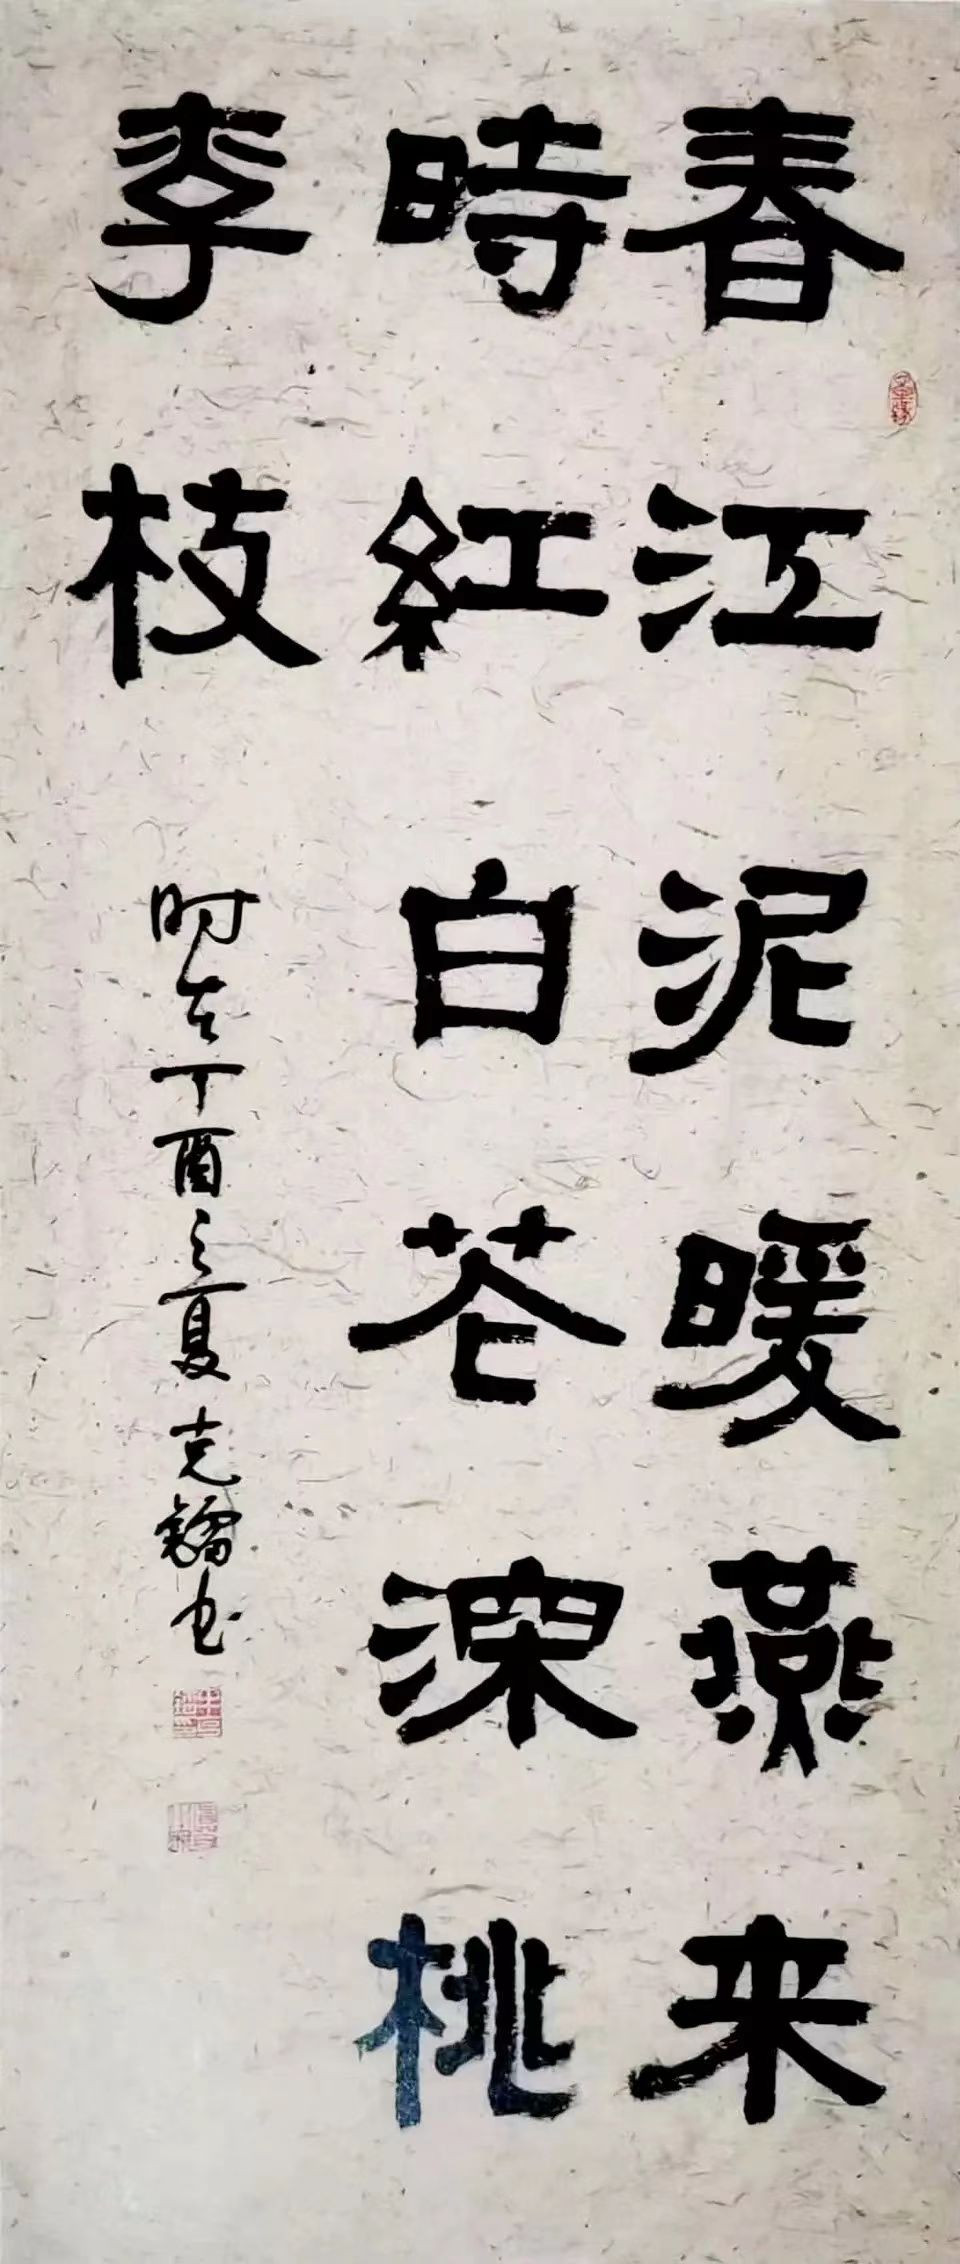 春江泥暖燕来
時紅白花深桃
李枝
时在丁酉之夏克鐂书